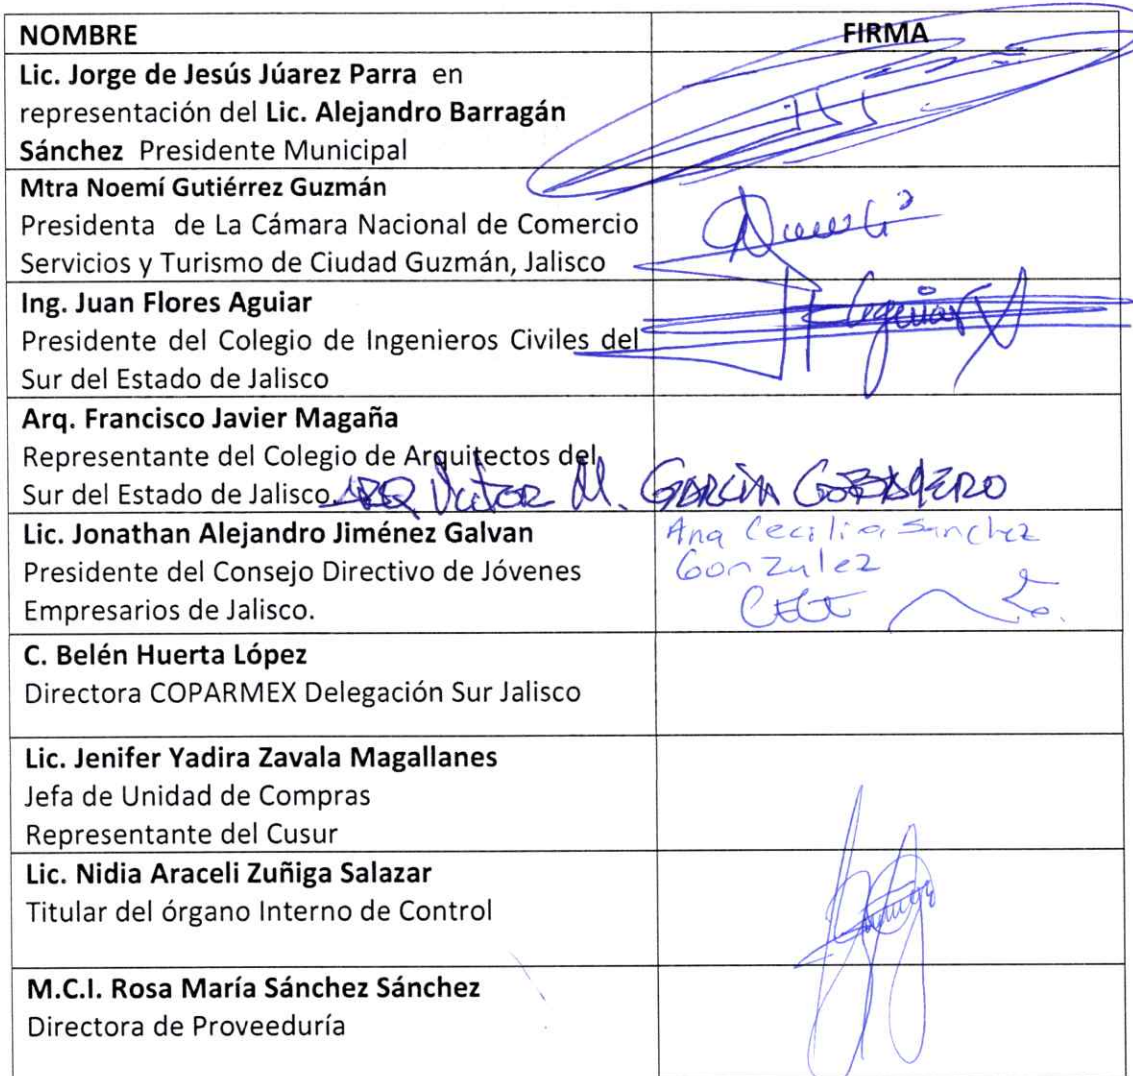 NOMBRE
FIRMA
Lic. Jorge de Jesús Júarez Parra en
representación del Lic. Alejandro Barragán
Sánchez Presidente Municipal
Mtra Noemí Gutiérrez Guzmán
Presidenta de La Cámara Nacional de Comercio
Servicios y Turismo de Ciudad Guzmán, Jalisco
Ing. Juan Flores Aguiar
Presidente del Colegio de Ingenieros Civiles del
Sur del Estado de Jalisco
Aguiar
Arq. Francisco Javier Magaña
Representante del Colegio de Arquitectos del
Sur del Estado de Jalisco.
ARQ Victor M. GARCÍA
Lic. Jonathan Alejandro Jiménez Galvan
Presidente del Consejo Directivo de Jóvenes
Empresarios de Jalisco.
Ana Cecilia Sanchez
Gonzalez
C. Belén Huerta López
Directora COPARMEX Delegación Sur Jalisco
Lic. Jenifer Yadira Zavala Magallanes
Jefa de Unidad de Compras
Representante del Cusur
Lic. Nidia Araceli Zuñiga Salazar
Titular del órgano Interno de Control
M.C.I. Rosa María Sánchez Sánchez
Directora de Proveeduría